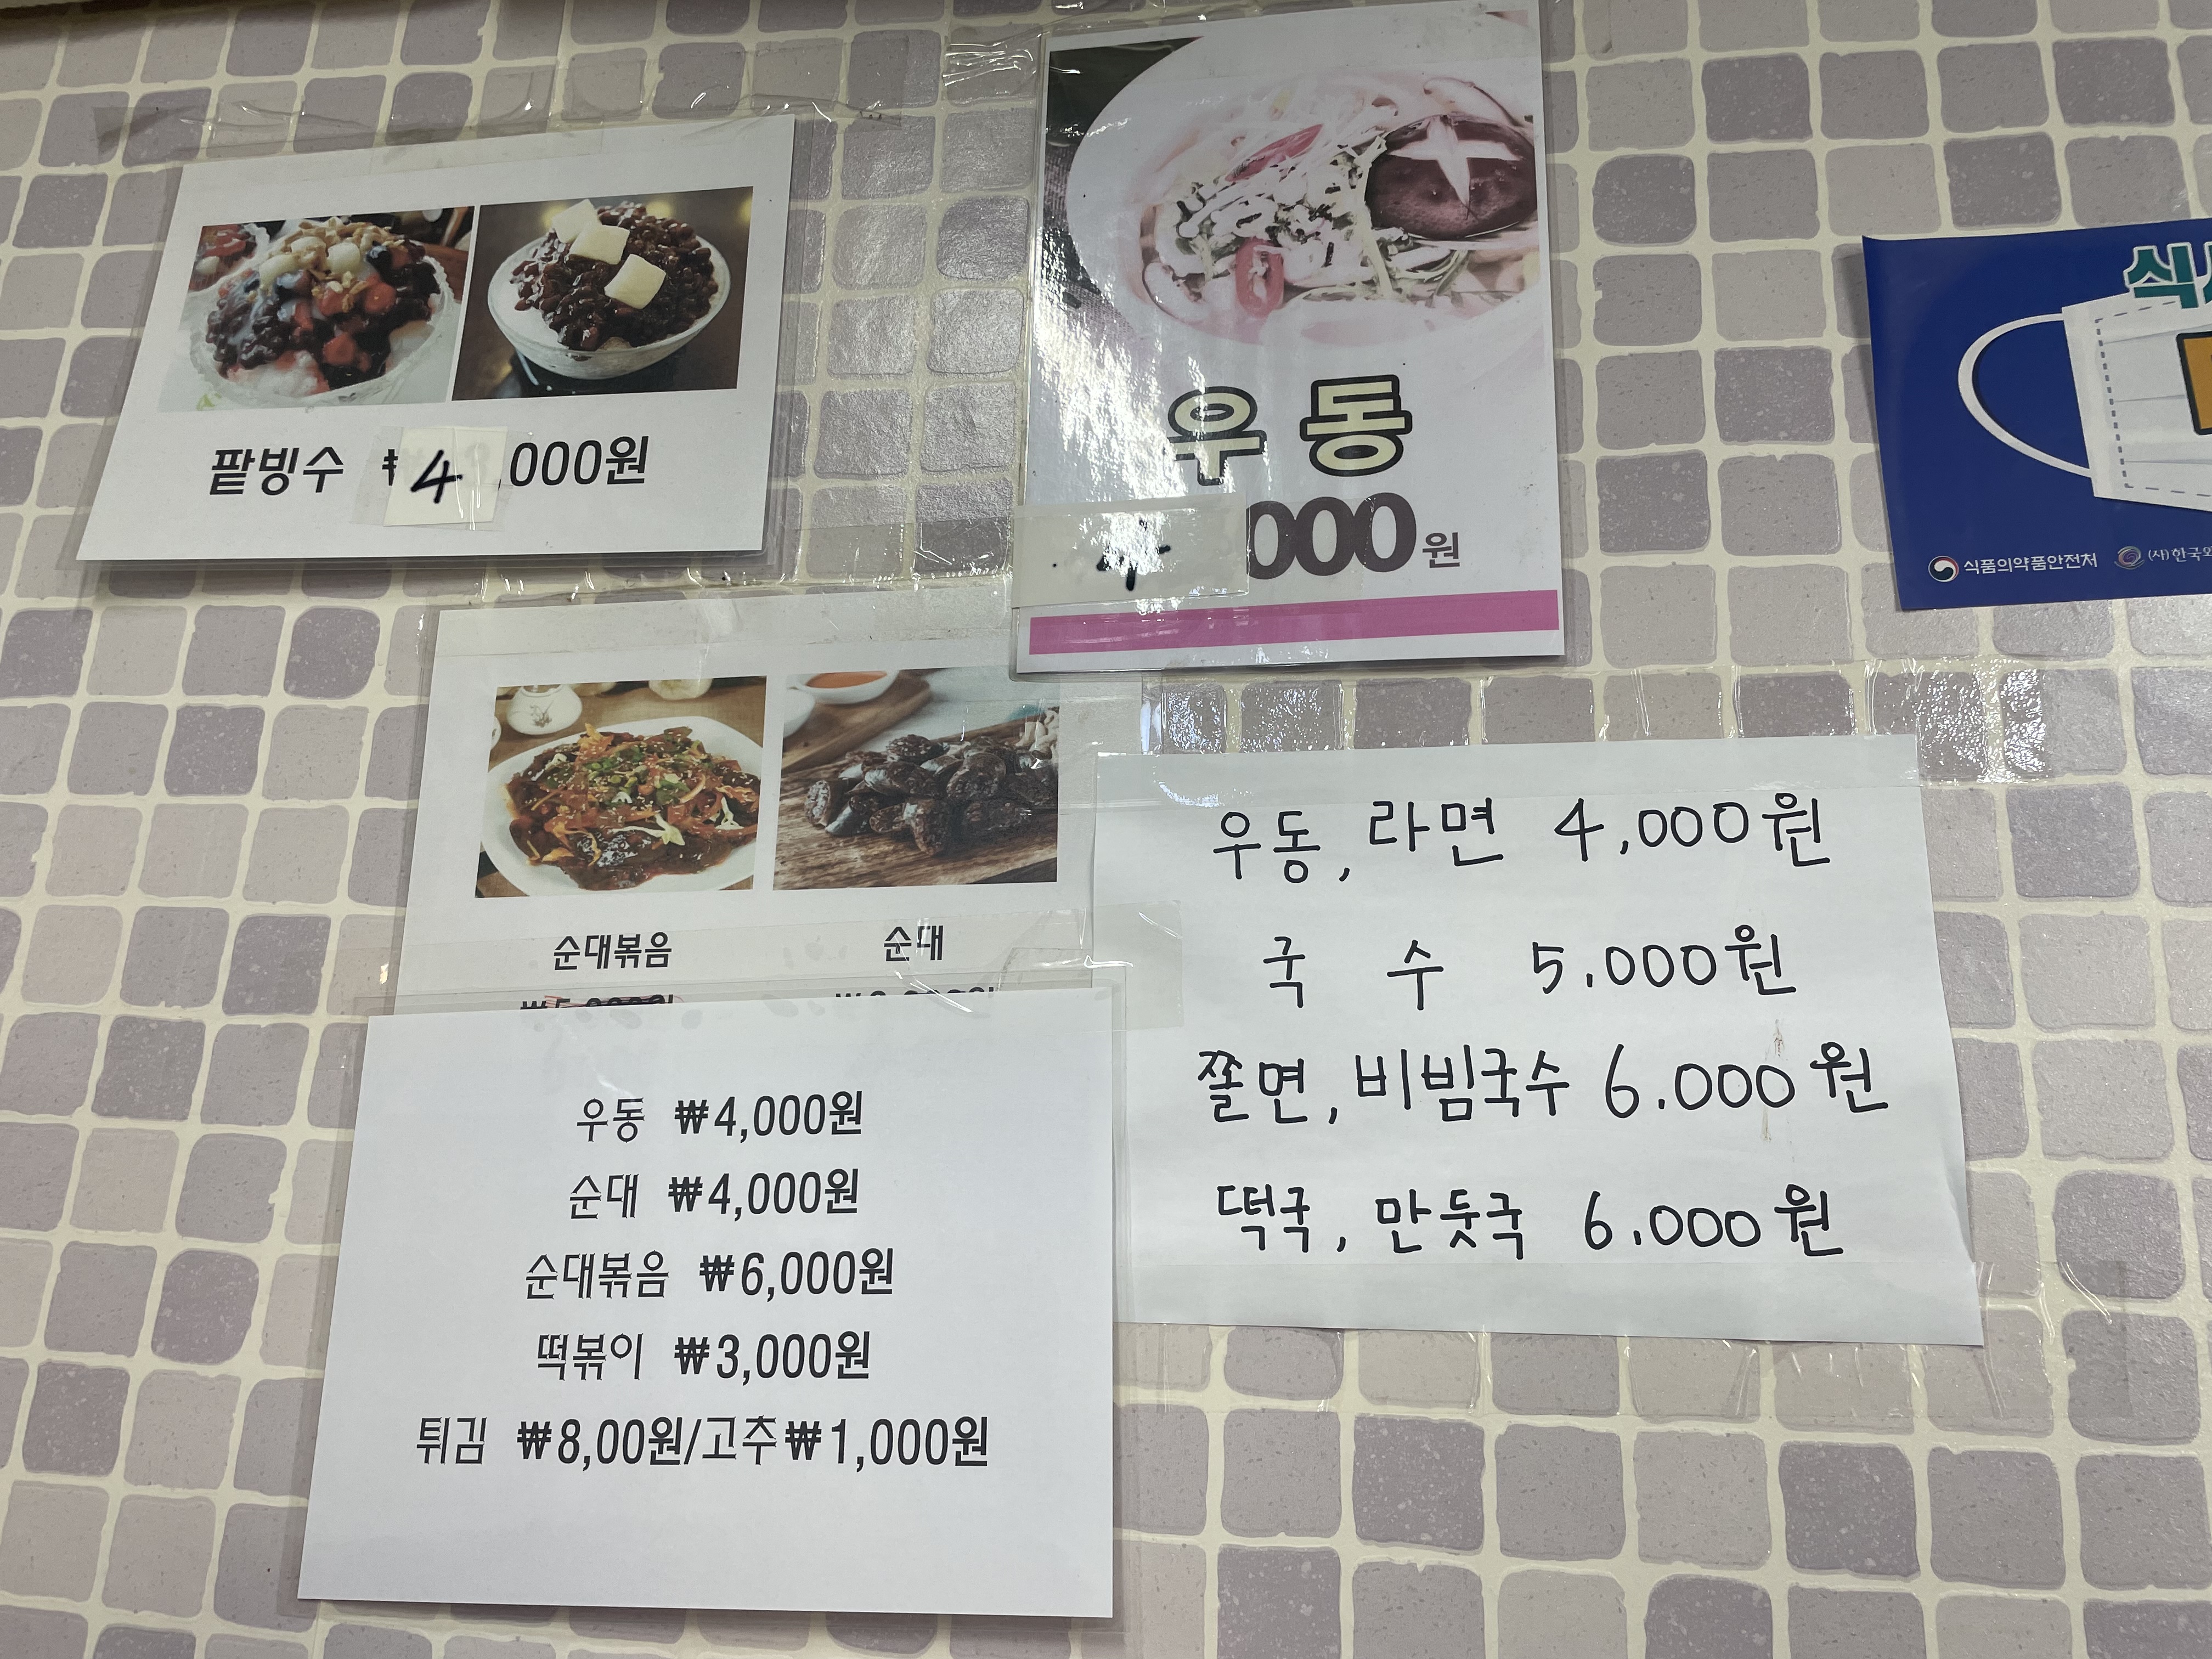 팥빙수 ₩4,000원
우동
4000원
식
식품의약품안전처 (사)한국외
순대볶음 순대
우동, 라면 4,000원
국 수 5.000원
쫄면, 비빔국수 6.000원
떡국, 만듯국 6.000원
우동 ₩4,000원
순대 ₩4,000원
순대볶음 ₩6,000원
떡볶이 ₩3,000원
튀김 ₩8,00원/고추₩1,000원